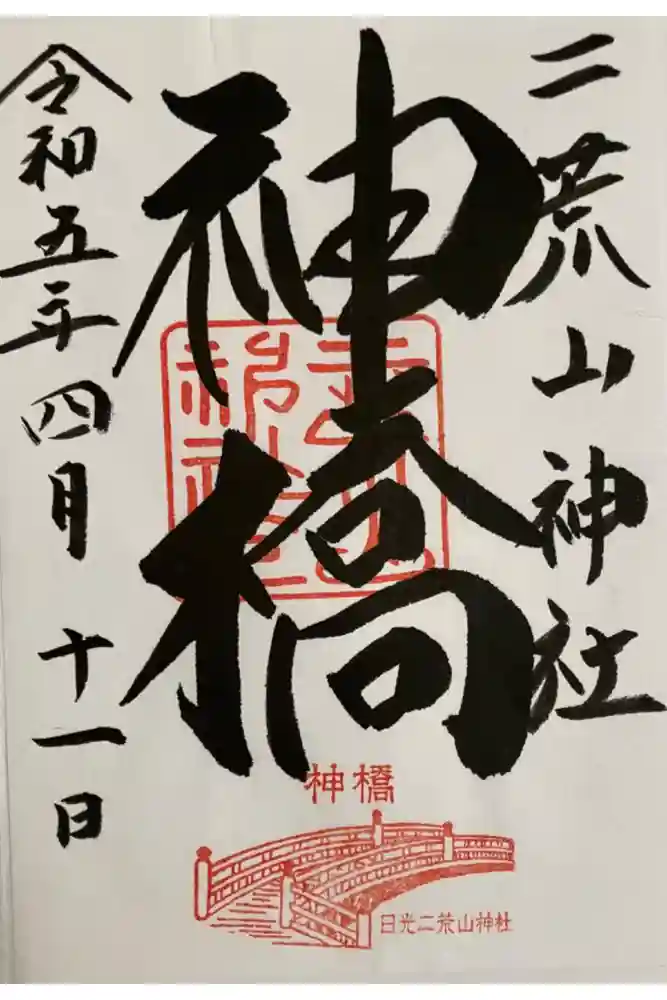 二荒山神社
神橋
令和五年四月十一日
神橋
日光二荒山神社